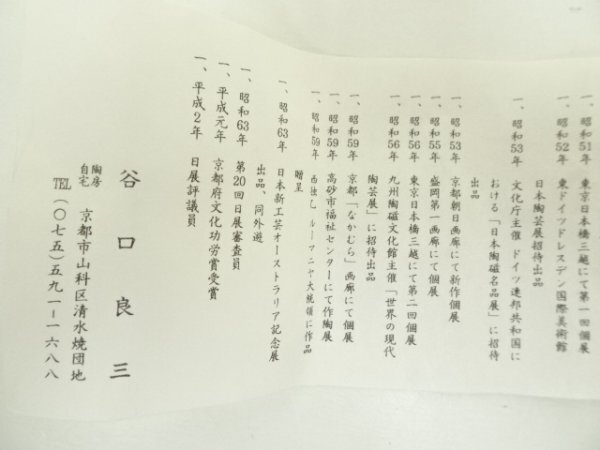 一、昭和51年　東京日本橋三越にて第一回個展
一、昭和52年　東ドイツドレスデン国際美術館
日本陶芸展招待出品
一、昭和53年　文化庁主催　ドイツ連邦共和国に
おける「日本陶磁名品展」に招待
出品
一、昭和53年　京都朝日画廊にて新作個展
一、昭和55年　盛岡第一画廊にて個展
一、昭和56年　東京日本橋三越にて第二回個展
一、昭和56年　九州陶磁文化館主催「世界の現代
陶芸展」に招待出品
一、昭和59年　京都「なかむら」画廊にて個展
一、昭和59年　高砂市福祉センターにて作陶展
一、昭和59年　西独乙　ルーマニヤ大統領に作品
贈呈
一、昭和63年　日本新工芸オーストラリア記念展
出品、同外遊
一、昭和63年　第20回日展審査員
一、平成元年　京都府文化功労賞受賞
一、平成2年　日展評議員
谷口良三
陶房
自宅　京都市山科区清水焼団地
TEL（〇七五）五九一ー一六八八